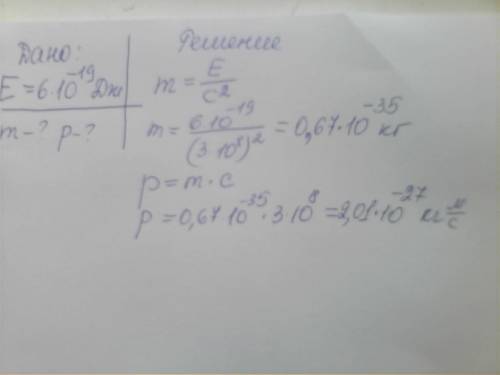 Дано:
E = 6·10⁻¹⁹ Дж
m - ? p - ?
Решение
m = E/c²
m = 6·10⁻¹⁹/(3·10⁸)² = 0,67·10⁻³⁵ кг
p = m·c
p = 0,67·10⁻³⁵·3·10⁸ = 2,01·10⁻²⁷ кг м/с